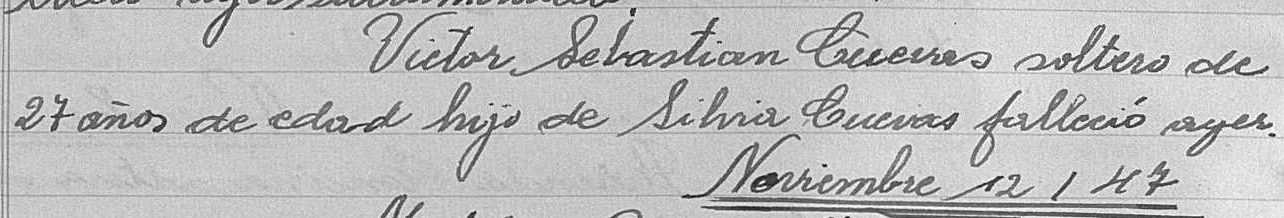 Victor Sebastian Cuevas soltero de
27 años de edad hijo de Silvia Cuevas falleció ayer.
Noviembre 12 / 47